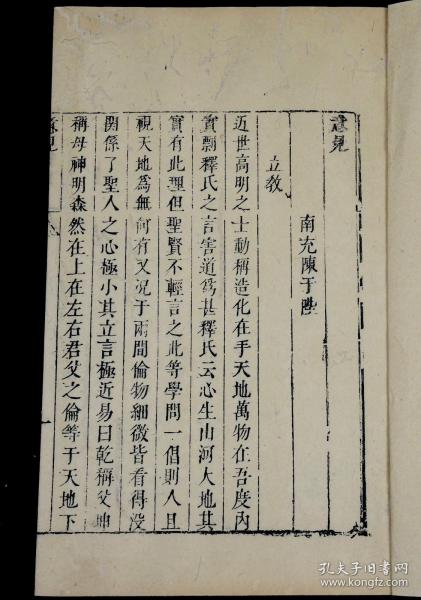 意見
南充陳于陛
立教
近世高明之士動稱造化在手天地萬物在吾度內
實剽釋氏之言害道爲甚釋氏云心生山河大地其
實有此理但聖賢不輕言之此等學問一倡則人且
視天地爲無何有又況于兩間倫物細微皆看得沒
関係了聖人之心極小其立言極近易曰乾稱父坤
稱母神明森然在上在左右君父之倫等于天地下
意見
一
孔夫子旧书网
www.kongfz.com